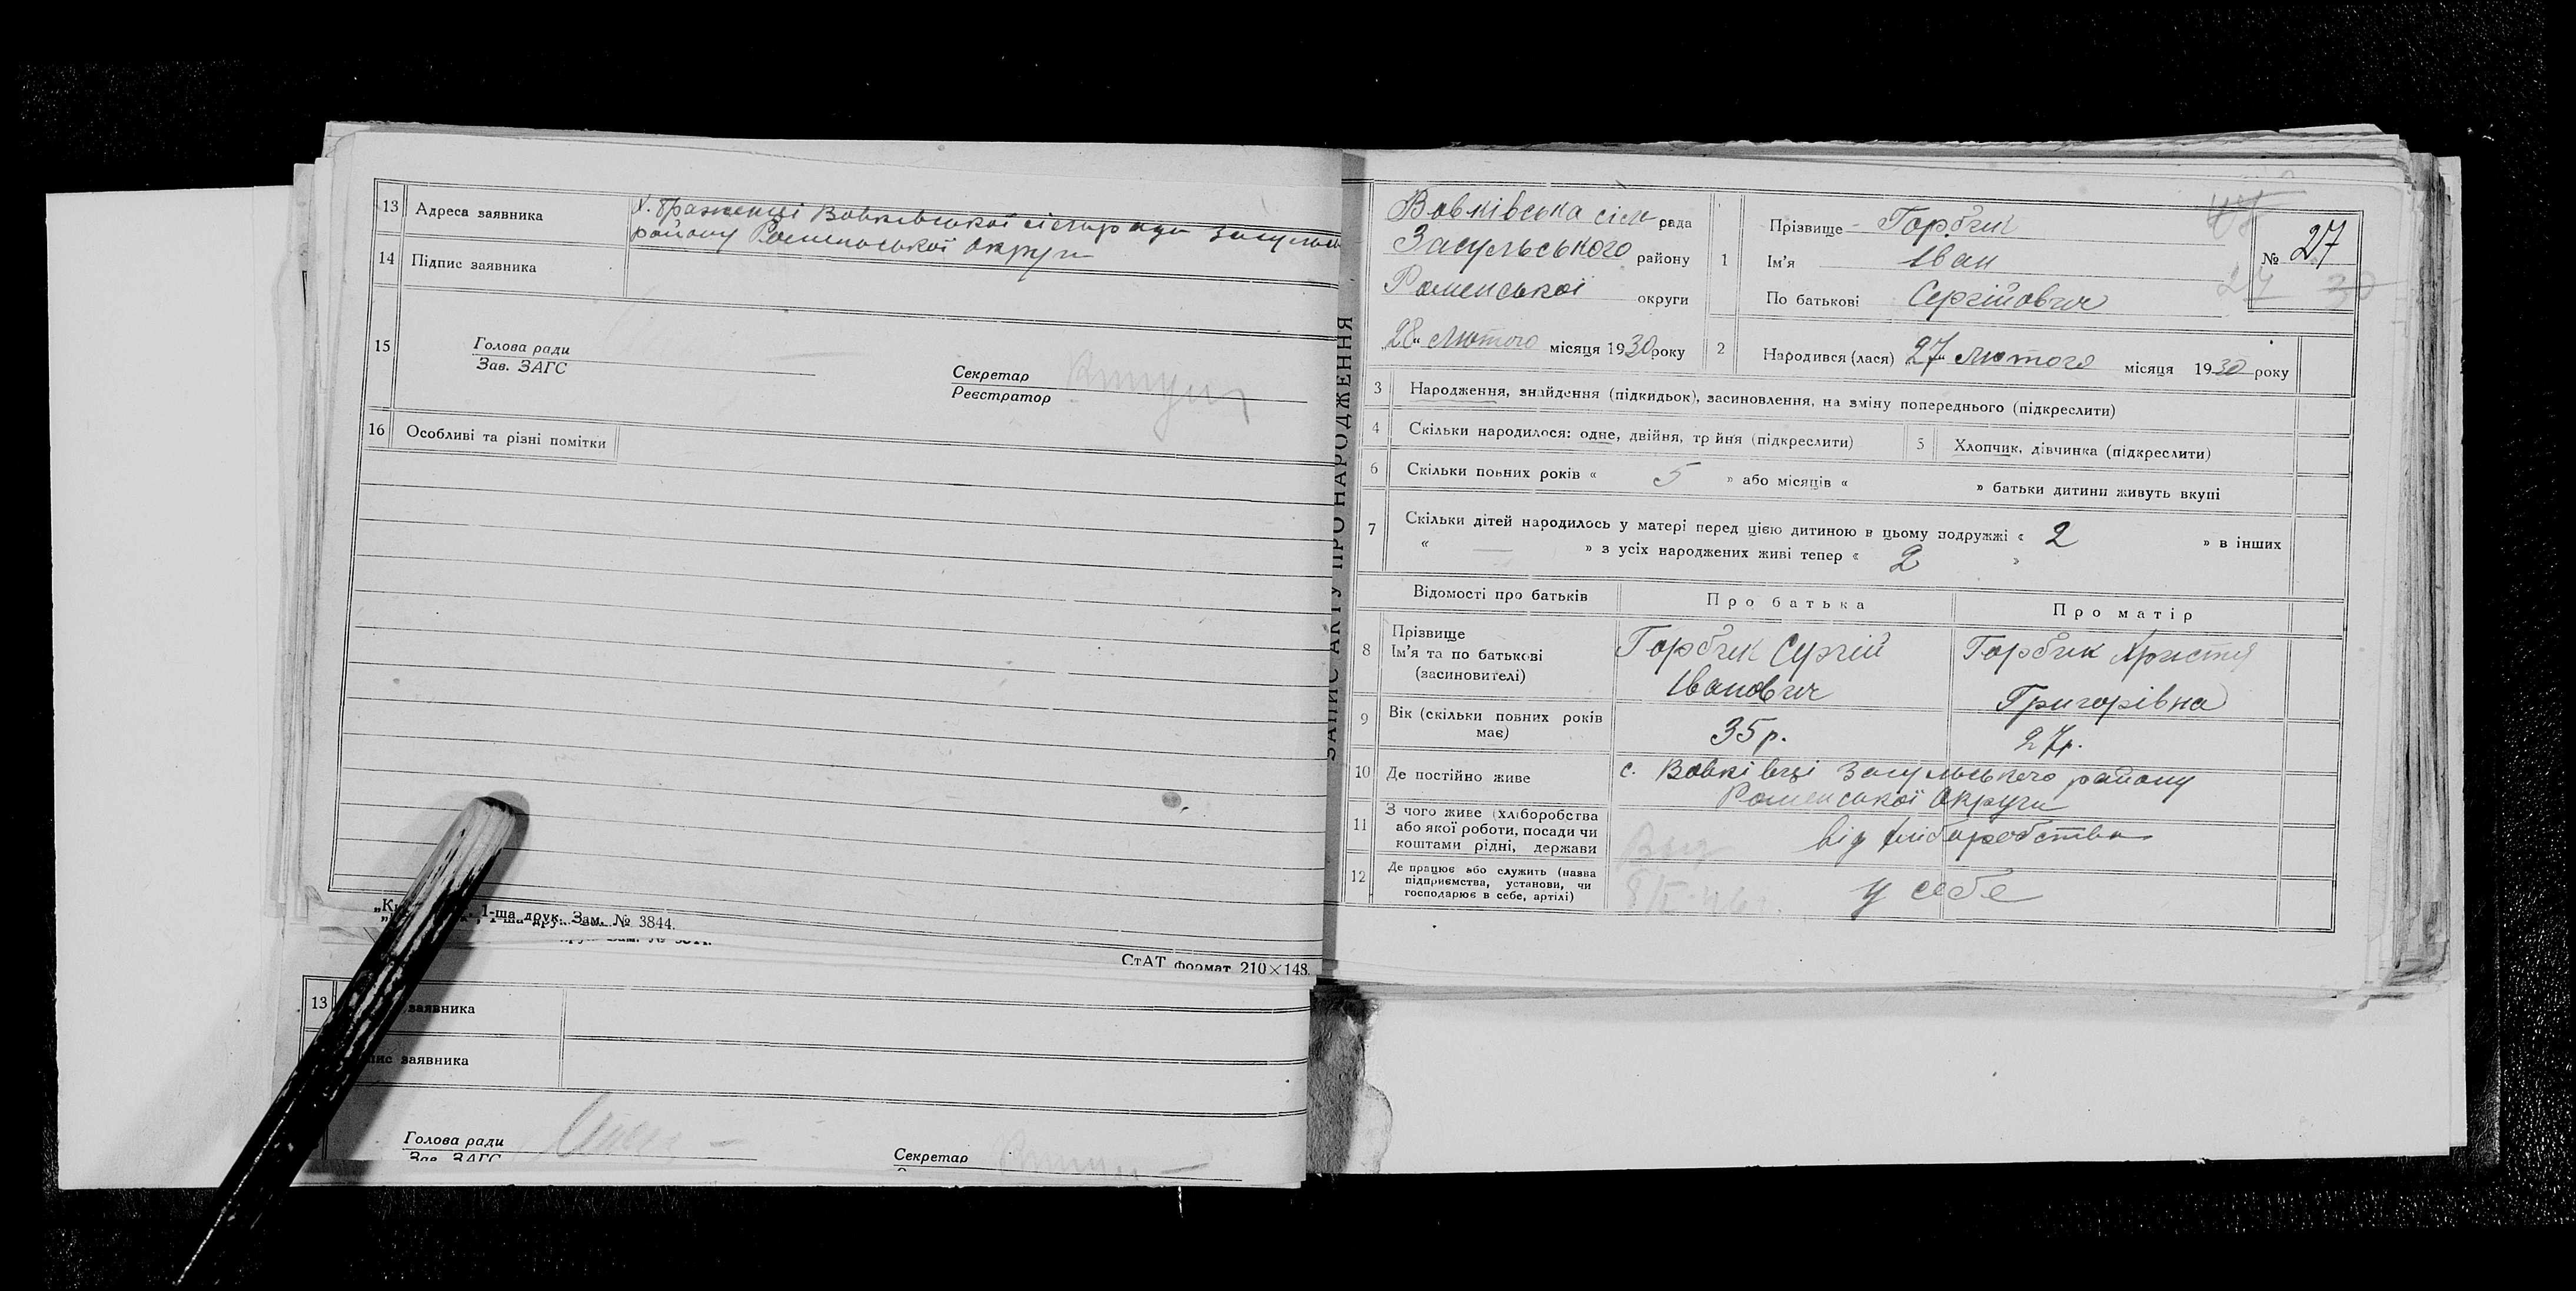 13 Адреса заявника
Вовківської сільради
району Роменської округи
14 Підпис заявника
15
Голова ради
Зав. ЗАГС
Секретар
Реєстратор
16 Особливі та різні помітки
1-ша друк. Зам. № 3844.
СтАТ формат 210×148.
13 заявника
заявника
Голова ради
Зав. ЗАГС
Секретар
ЗАПИС АКТУ ПРО НАРОДЖЕННЯ
Вовківська сіль рада
Засульського району
Роменської округи
„28“ Лютого місяця 1930 року
1 Прізвище Горбик
Ім'я Іван
По батькові Сергійович
№ 27
27 30
2 Народився (лася) „27“ Лютого місяця 1930 року
3 Народження, знайдення (підкидьок), засиновлення, на зміну попереднього (підкреслити)
4 Скільки народилося: одне, двійня, трійня (підкреслити)
5 Хлопчик, дівчинка (підкреслити)
6 Скільки повних років « 5 » або місяців « » батьки дитини живуть вкупі
7 Скільки дітей народилось у матері перед цією дитиною в цьому подружжі « 2 » в інших
« — » з усіх народжених живі тепер « 2 »
Відомості про батьків Про батька Про матір
8 Прізвище
Ім'я та по батькові
(засновителі)
Горбик Сергій
Іванович
Горбик Христя
Григорівна
9 Вік (скільки повних років
має)
35 р.
27 р.
10 Де постійно живе
с. Вовківці Засульського району
Роменської Округи
11 З чого живе (хліборобства
або якої роботи, посади чи
коштами рідні, держави
від хліборобства
12 Де працює або служить (назва
підприємства, установи, чи
господарює в себе, артілі)
у себе